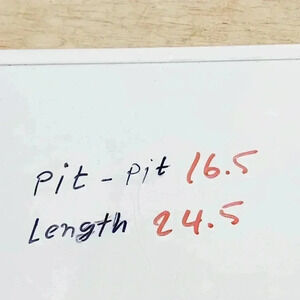 pit - pit 16.5
Length 24.5